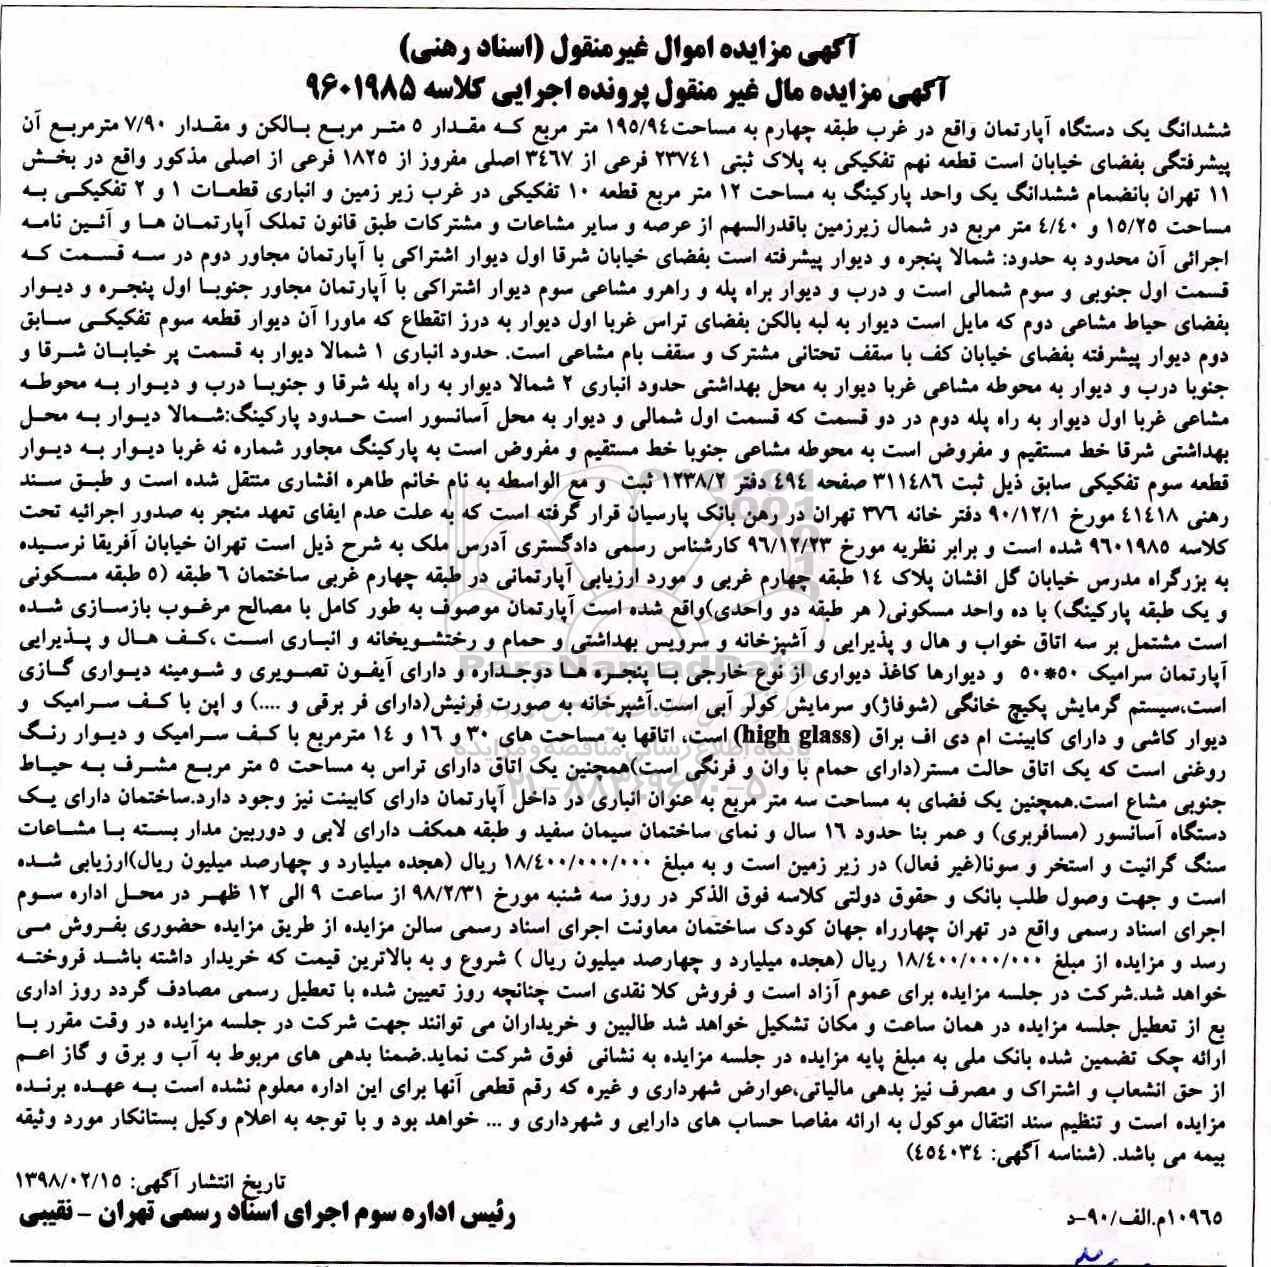 آگهی مزایده اموال غیرمنقول (اسناد رهنی)
آگهی مزایده مال غیر منقول پرونده اجرایی کلاسه ۹۶۰۱۹۸۵
ششدانگ یک دستگاه آپارتمان واقع در غرب طبقه چهارم به مساحت۱۹۵/۹۴ متر مربع که مقدار ۵ متر مربع بالکن و مقدار ۷/۹۰ مترمربع آن
پیشرفتگی بفضای خیابان است قطعه نهم تفکیکی به پلاک ثبتی ۲۳۷۴۱ فرعی از ۳۴۶۷ اصلی مفروز از ۱۸۲۵ فرعی از اصلی مذکور واقع در بخش
۱۱ تهران بانضمام ششدانگ یک واحد پارکینگ به مساحت ۱۲ متر مربع قطعه ۱۰ تفکیکی در غرب زیر زمین و انباری قطعات ۱ و ۲ تفکیکی به
مساحت ۱۵/۲۵ و ۴/۴۰ متر مربع در شمال زیرزمین باقدرالسهم از عرصه و سایر مشاعات و مشترکات طبق قانون تملک آپارتمان ها و آئین نامه
اجرائی آن محدود به حدود: شمالا پنجره و دیوار پیشرفته است بفضای خیابان شرقا اول دیوار اشتراکی با آپارتمان مجاور دوم در سه قسمت که
قسمت اول جنوبی و سوم شمالی است و درب و دیوار براه پله و راهرو مشاعی سوم دیوار اشتراکی با آپارتمان مجاور جنوبا اول پنجره و دیوار
بفضای حیاط مشاعی دوم که مایل است دیوار به لبه بالکن بفضای تراس غربا اول دیوار به درز انقطاع که ماورا آن دیوار قطعه سوم تفکیکی سابق
دوم دیوار پیشرفته بفضای خیابان کف با سقف تحتانی مشترک و سقف بام مشاعی است. حدود انباری ۱ شمالا دیوار به قسمت پر خیابان شرقا و
جنوبا درب و دیوار به محوطه مشاعی غربا دیوار به محل بهداشتی حدود انباری ۲ شمالا دیوار به راه پله شرقا و جنوبا درب و دیوار به محوطه
مشاعی غربا اول دیوار به راه پله دوم در دو قسمت که قسمت اول شمالی و دیوار به محل آسانسور است حدود پارکینگ:شمالا دیوار به محل
بهداشتی شرقا خط مستقیم و مفروض است به محوطه مشاعی جنوبا خط مستقیم و مفروض است به پارکینگ مجاور شماره نه غربا دیوار به دیوار
قطعه سوم تفکیکی سابق ذیل ثبت ۳۱۱۴۸۶ صفحه ۴۹۴ دفتر ۱۲۳۸/۲ ثبت و مع الواسطه به نام خانم طاهره افشاری منتقل شده است و طبق سند
رهنی ۴۱۴۱۸ مورخ ۹۰/۱۲/۱ دفتر خانه ۳۷۶ تهران در رهن بانک پارسیان قرار گرفته است که به علت عدم ایفای تعهد منجر به صدور اجرائیه تحت
کلاسه ۹۶۰۱۹۸۵ شده است و برابر نظریه مورخ ۹۶/۱۲/۲۳ کارشناس رسمی دادگستری آدرس ملک به شرح ذیل است تهران خیابان آفریقا نرسیده
به بزرگراه مدرس خیابان گل افشان پلاک ۱۴ طبقه چهارم غربی و مورد ارزیابی آپارتمانی در طبقه چهارم غربی ساختمان ۶ طبقه (۵ طبقه مسکونی
و یک طبقه پارکینگ) با ده واحد مسکونی( هر طبقه دو واحدی)واقع شده است آپارتمان موصوف به طور کامل با مصالح مرغوب بازسازی شده
است مشتمل بر سه اتاق خواب و هال و پذیرایی و آشپزخانه و سرویس بهداشتی و حمام و رختشویخانه و انباری است ،کف هال و پذیرایی
آپارتمان سرامیک ۵۰*۵۰ و دیوارها کاغذ دیواری از نوع خارجی با پنجره ها دوجداره و دارای آیفون تصویری و شومینه دیواری گازی
است،سیستم گرمایش پکیچ خانگی (شوفاژ)و سرمایش کولر آبی است.آشپرخانه به صورت فرنیش(دارای فر برقی و ....) و اپن با کف سرامیک و
دیوار کاشی و دارای کابینت ام دی اف براق (high glass) است، اتاقها به مساحت های ۳۰ و ۱۶ و ۱۴ مترمربع با کف سرامیک و دیوار رنگ
روغنی است که یک اتاق حالت مستر(دارای حمام با وان و فرنگی است)همچنین یک اتاق دارای تراس به مساحت ۵ متر مربع مشرف به حیاط
جنوبی مشاع است.همچنین یک فضای به مساحت سه متر مربع به عنوان انباری در داخل آپارتمان دارای کابینت نیز وجود دارد.ساختمان دارای یک
دستگاه آسانسور (مسافربری) و عمر بنا حدود ۱۶ سال و نمای ساختمان سیمان سفید و طبقه همکف دارای لابی و دوربین مدار بسته با مشاعات
سنگ گرانیت و استخر و سونا(غیر فعال) در زیر زمین است و به مبلغ ۱۸/۴۰۰/۰۰۰/۰۰۰ ریال (هجده میلیارد و چهارصد میلیون ریال)ارزیابی شده
است و جهت وصول طلب بانک و حقوق دولتی کلاسه فوق الذکر در روز سه شنبه مورخ ۹۸/۲/۳۱ از ساعت ۹ الی ۱۲ ظهر در محل اداره سوم
اجرای اسناد رسمی واقع در تهران چهارراه جهان کودک ساختمان معاونت اجرای اسناد رسمی سالن مزایده از طریق مزایده حضوری بفروش می
رسد و مزایده از مبلغ ۱۸/۴۰۰/۰۰۰/۰۰۰ ریال (هجده میلیارد و چهارصد میلیون ریال ) شروع و به بالاترین قیمت که خریدار داشته باشد فروخته
خواهد شد.شرکت در جلسه مزایده برای عموم آزاد است و فروش کلا نقدی است چنانچه روز تعیین شده با تعطیل رسمی مصادف گردد روز اداری
بع از تعطیل جلسه مزایده در همان ساعت و مکان تشکیل خواهد شد طالبین و خریداران می توانند جهت شرکت در جلسه مزایده در وقت مقرر با
ارائه چک تضمین شده بانک ملی به مبلغ پایه مزایده در جلسه مزایده به نشانی فوق شرکت نماید.ضمنا بدهی های مربوط به آب و برق و گاز اعم
از حق انشعاب و اشتراک و مصرف نیز بدهی مالیاتی،عوارض شهرداری و غیره که رقم قطعی آنها برای این اداره معلوم نشده است به عهده برنده
مزایده است و تنظیم سند انتقال موکول به ارائه مفاصا حساب های دارایی و شهرداری و ... خواهد بود و با توجه به اعلام وکیل بستانکار مورد وثیقه
بیمه می باشد. (شناسه آگهی: ۴۵۴۰۳۴)
تاریخ انتشار آگهی: ۱۳۹۸/۰۲/۱۵
رئیس اداره سوم اجرای اسناد رسمی تهران – نقیبی
۱۰۹۶۵م.الف/۹۰-د
ParsNamadData
پایگاه اطلاع رسانی مناقصه و مزایده
۰۲۱-۸۸۳۴۹۶۷۰-۵